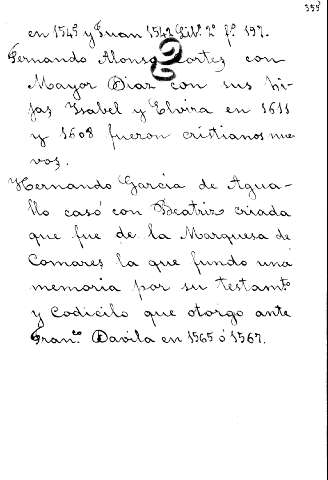 335
en 1545 y Juan 1542 Lib.º 2º fº 197.
Fernando Alonso Cortes con
Mayor Diaz con sus hi-
jas Isabel y Elvira en 1611
y 1608 fueron cristianos nue
vos.
Hernando Garcia de Agua-
llo casó con Beatriz criada
que fue de la Marquesa de
Comares la que fundo una
memoria por su testamtº
y Codicilo que otorgo ante
Franco Davila en 1565 ó 1567.